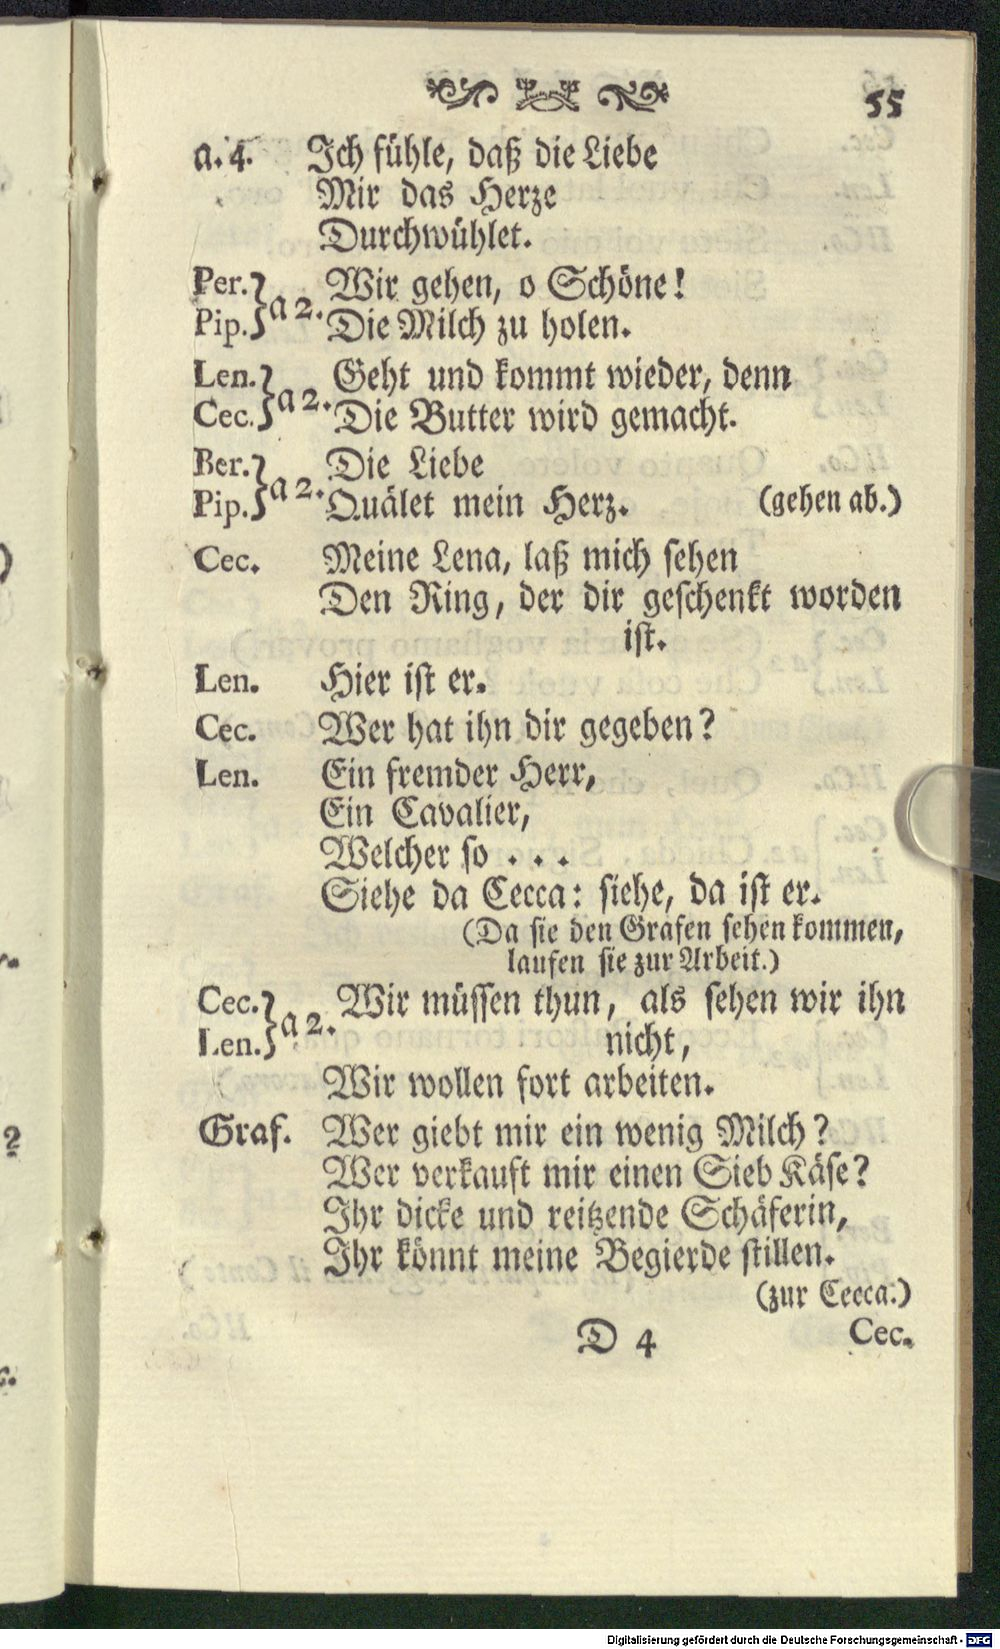 55
a. 4. Ich fühle, daß die Liebe
Mir das Herze
Durchwühlet.
Per. } a 2. Wir gehen, o Schöne!
Pip. } Die Milch zu holen.
Len. } a 2. Geht und kommt wieder, denn
Cec. } Die Butter wird gemacht.
Ber. } a 2. Die Liebe
Pip. } Quälet mein Herz. (gehen ab.)
Cec. Meine Lena, laß mich sehen
Den Ring, der dir geschenkt worden
ist.
Len. Hier ist er.
Cec. Wer hat ihn dir gegeben?
Len. Ein fremder Herr,
Ein Cavalier,
Welcher so . . .
Siehe da Cecca: siehe, da ist er.
(Da sie den Grafen sehen kommen,
laufen sie zur Arbeit.)
Cec. } a 2. Wir müssen thun, als sehen wir ihn
Len. } nicht,
Wir wollen fort arbeiten.
Graf. Wer giebt mir ein wenig Milch?
Wer verkauft mir einen Sieb Käse?
Ihr dicke und reitzende Schäferin,
Ihr könnt meine Begierde stillen.
(zur Cecca.)
D 4 Cec.
Digitalisierung gefördert durch die Deutsche Forschungsgemeinschaft - DFG